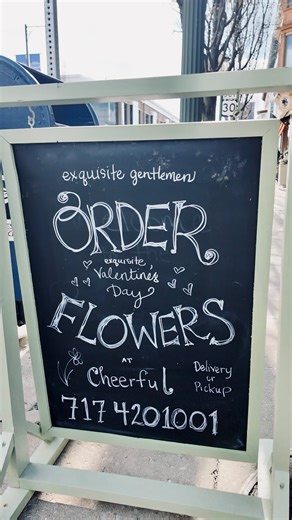 exquisite gentlemen
ORDER
exquisite,
Valentines
Day
FLOWERS
AT
Cheerful
Delivery
or
Pickup
717 4201001
30